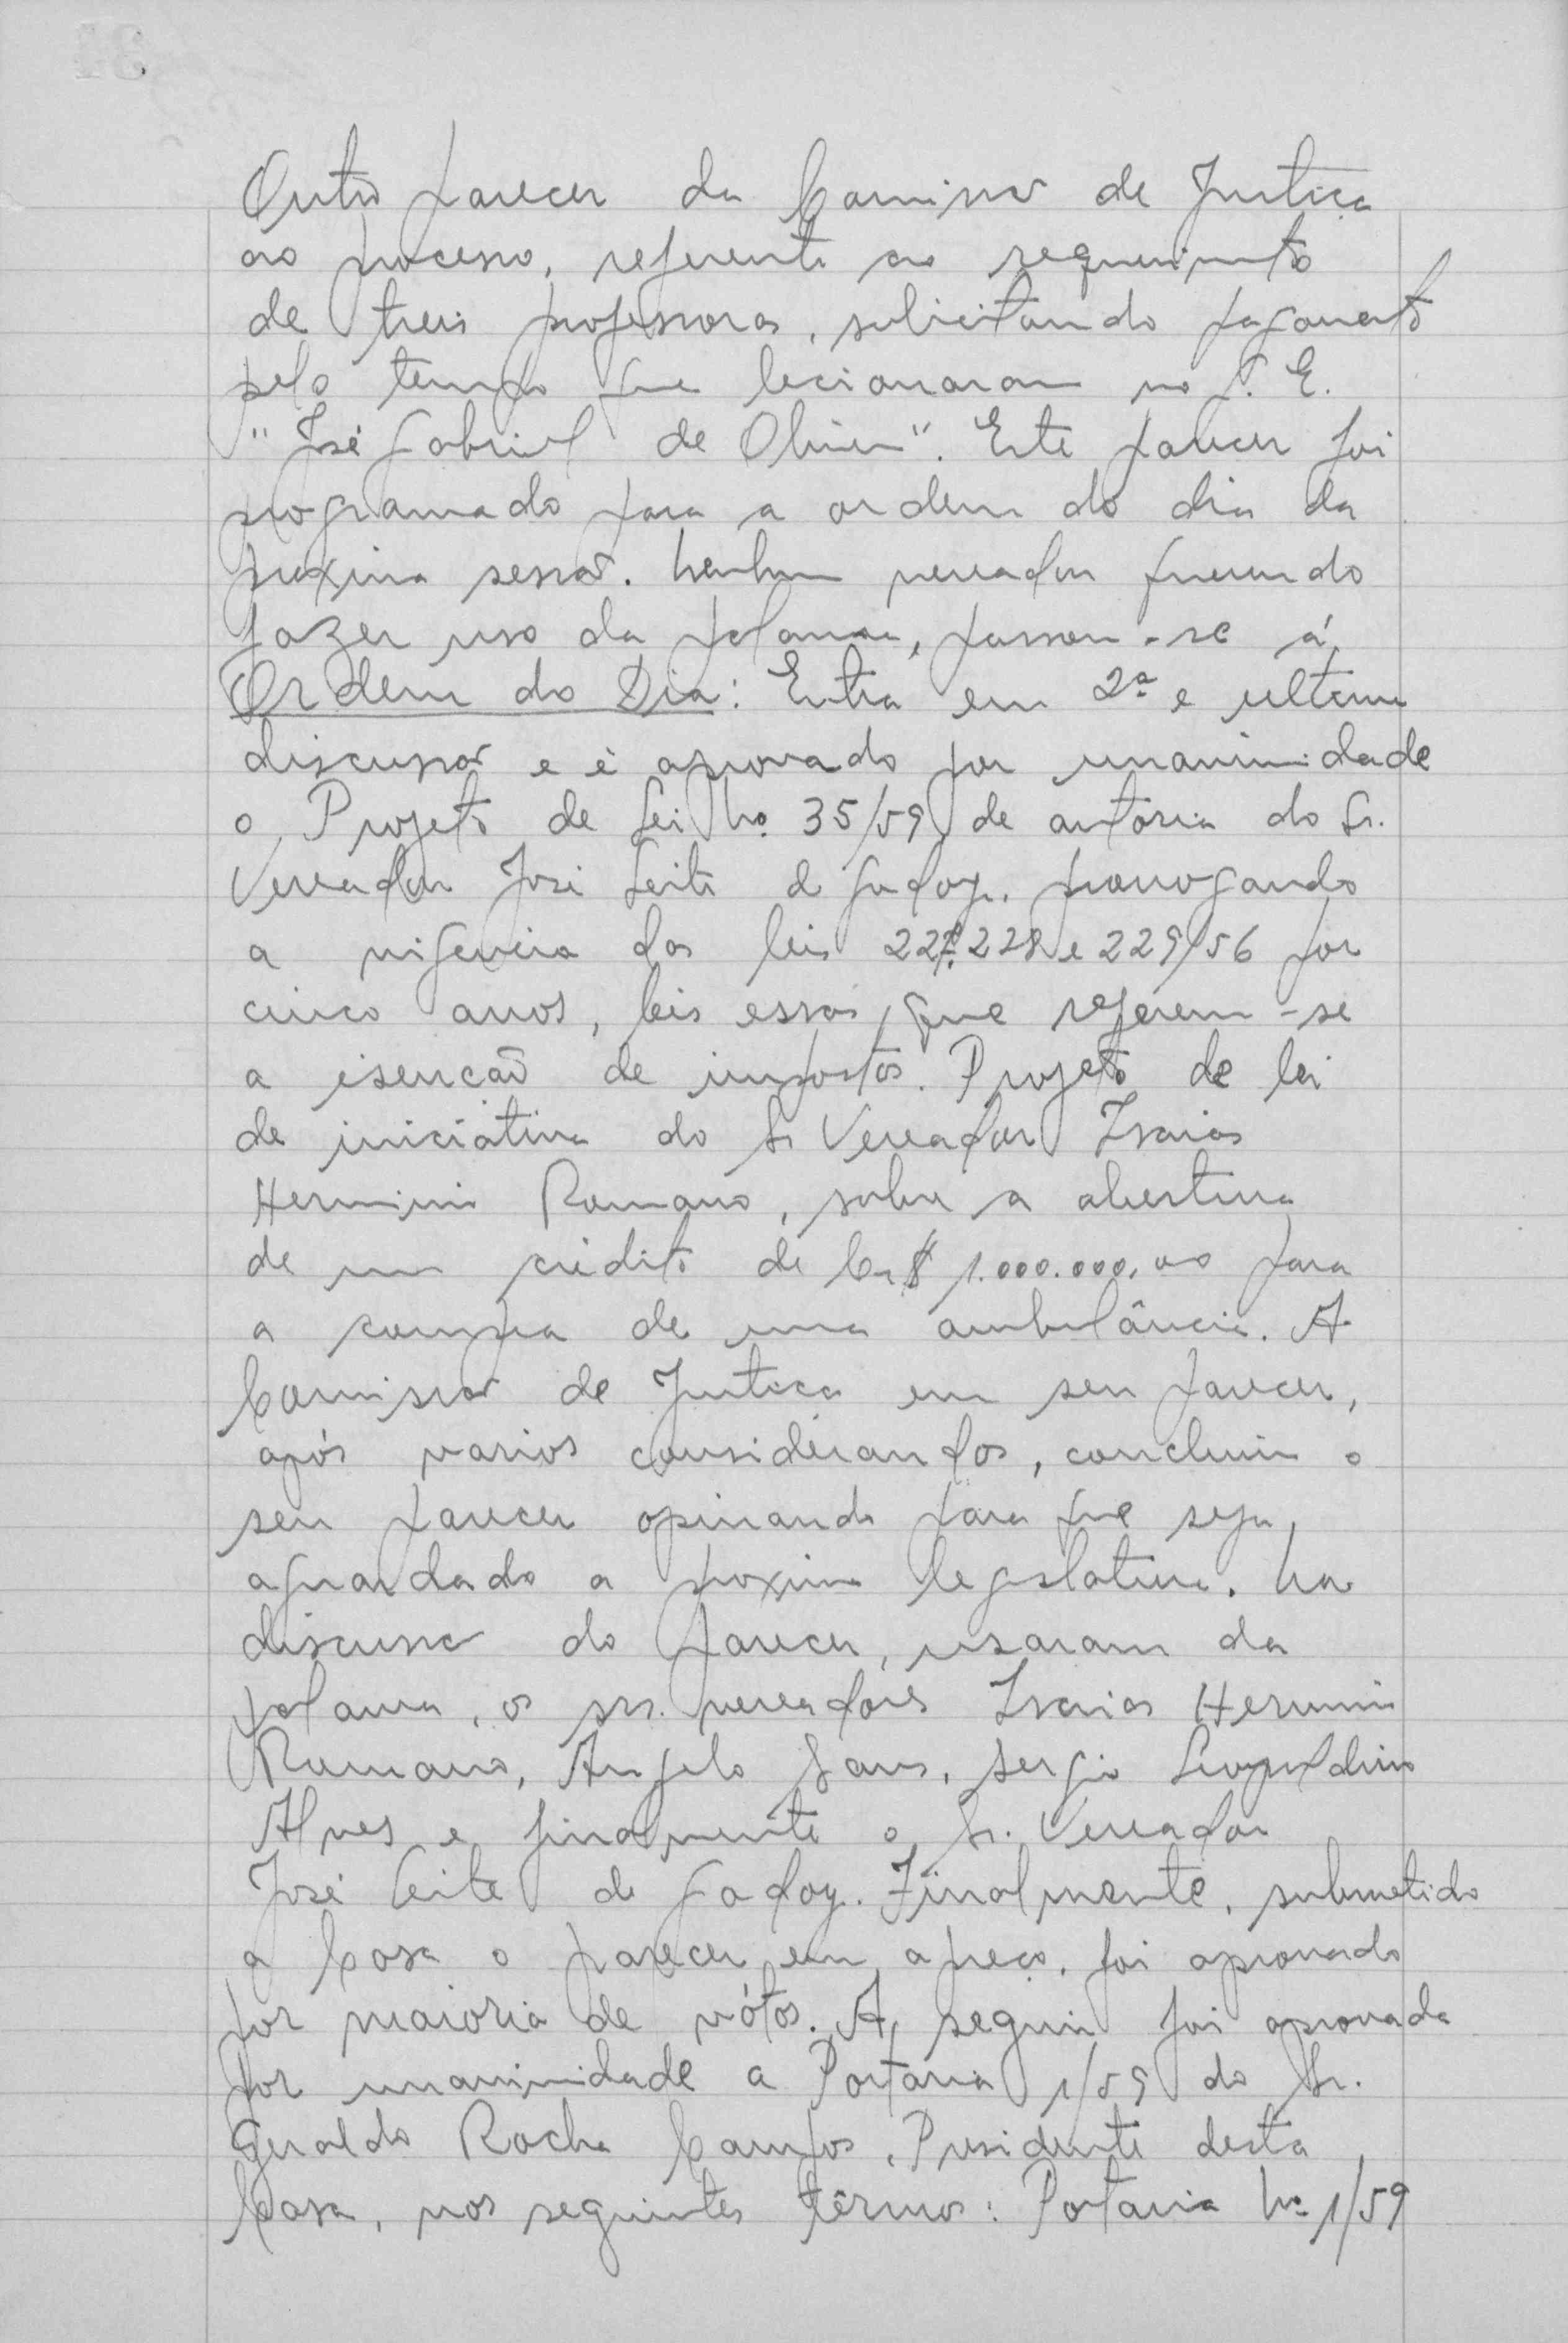 Outro parecer da Comissão de Justiça
ao processo, referente ao requerimento
de treis professoras, solicitando pagamento
pelo tempo que lecionaram no G. E.
"José Gabriel de Oliveira". Este parecer foi
programado para a ordem do dia da
proxima sessão. Nenhum vereador querendo
fazer uso da palavra, passou-se á
Ordem do Dia: Entra em 2ª e ultima
discussão e é aprovado por unanimidade
o Projeto de Lei Nº 35/59 de autoria do Sr.
Vereador José Leite de Godoy, prorrogando
a vigencia das leis 227, 228 e 229/56 por
cinco anos, leis essas que referem-se
a isenção de impostos. Projeto de lei
de iniciativa do Sr Vereador Isaias
Herminio Romano, sobre a abertura
de um crédito de Cr$ 1.000.000,00 para
a compra de uma ambulância. A
Comissão de Justiça em seu parecer,
após varios considerandos, concluiu o
seu parecer opinando para que seja
aguardado a proxima legislatura. Na
discussão do parecer, usaram da
palavra, os srs. vereadores Isaias Herminio
Romano, Angelo Sans, Sergio Leopoldino
Alves e finalmente o Sr. Vereador
José Leite de Godoy. Finalmente, submetido
a Casa o parecer em apreço, foi aprovado
por maioria de vótos. A seguir foi aprovada
por unanimidade a Portaria 1/59 do Sr.
Geraldo Rocha Campos, Presidente desta
Casa, nos seguintes têrmos: Portaria Nº 1/59